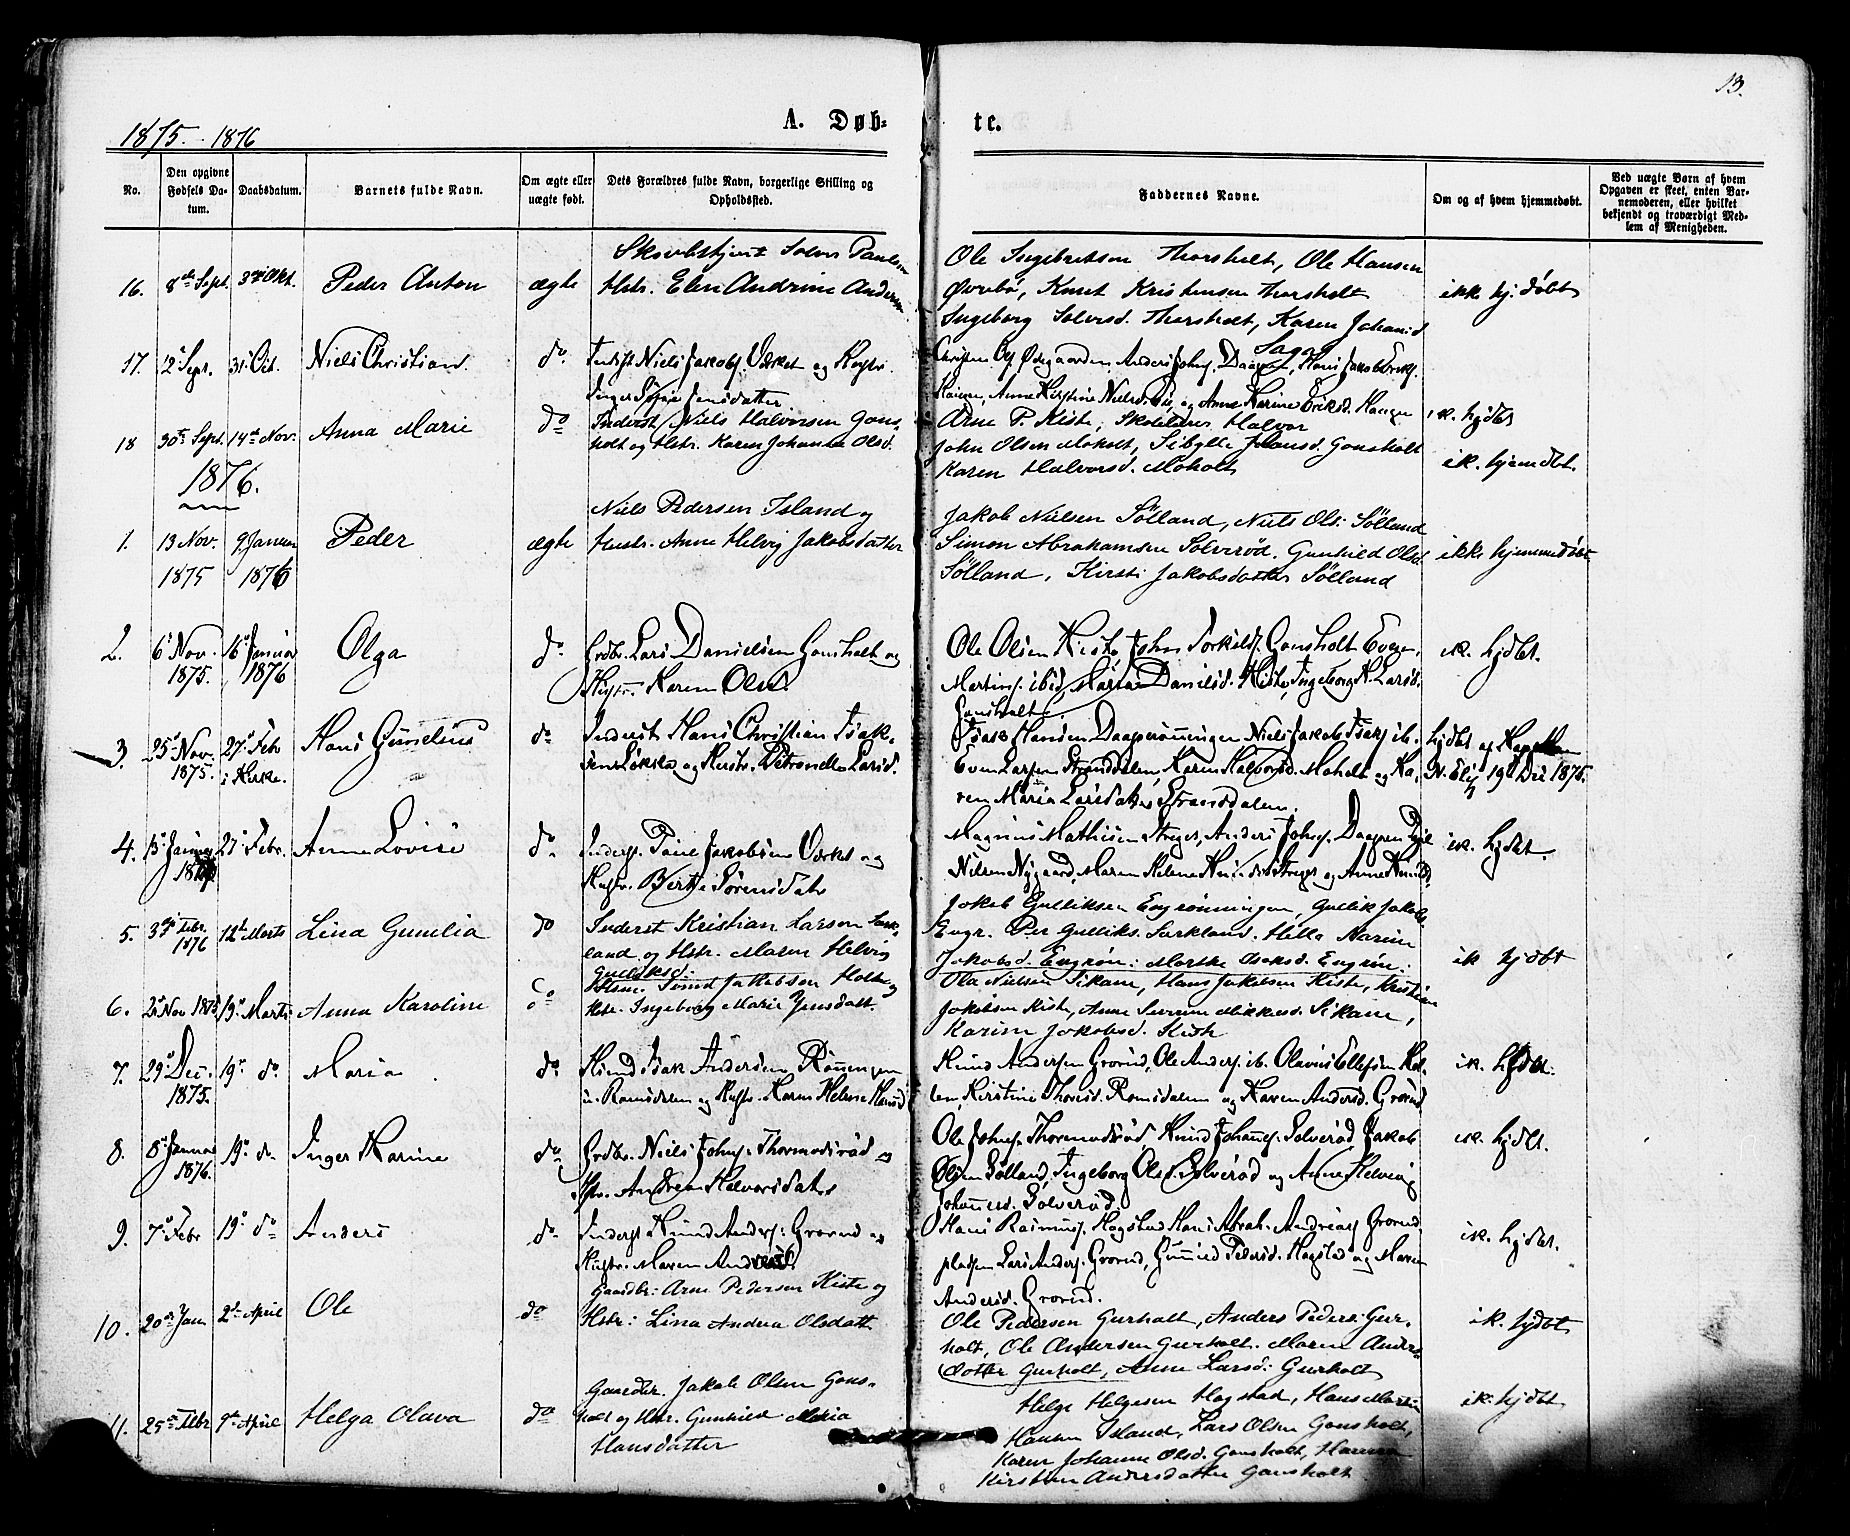 13.
1875.-1876
A. Døb-
te.
No.
Den opgivne Fødsels Da-
tum.
Daabsdatum.
Barnets fulde Navn.
Om ægte eller
uægte født.
Dets Forældres fulde Navn, borgerlige Stilling og
Opholdssted.
Faddernes Navne.
Om og af hvem hjemmedøbt.
Ved uægte Børn af hvem
Opgaven er skeet, enten Bar-
nemoderen, eller hvilket
bekjendt og troværdigt Med-
lem af Menigheden.
16. 8de Sept. 3die Okt. Peder Anton ægte
Hstr. Elen Andrine Andersen
Ole Ingebretsen Thorsholt, Ole Hansen
Øvrebø, Knut Kristensen Thorsholt
Ingeborg Solvesd. Thorsholt, Karen Johansd
Saga
ikke hj. døbt
17. 12 Sept. 31. Oct. Niels Christian. do
Niels Jakobs. Vasket og Hustr.
Inger Sofie Jensdatter
ik. hjdbt
18 30te Sept. 14de Nov. Anna Marie do
Inderst Niels Halvorsen Gons-
holt og Hstr. Karen Johanne Olsd.
Arne P. Kiste, Skolelærer Halvor
John Olsen Moholt, Sibylle Gonsholt
Karen Halvorsd. Moholt
ik. hjemdbt.
1876.
1. 13 Nov. 9. Januar Peder ægte
1875 1876
Niels Pedersen Island og
Hustr. Anne Helvig Jakobsdatter
Jakob Nielsen Sølland, Niels Ols. Sølland
Simon Abrahamsen Solverød. Gunhild Olsd
Sølland, Kirsti Jakobsdatter Sølland
ikke hjemmedøbt
2. 6 Nov. 16 Januar Olga do
1875. 1876
Grdbr. Lars Danielsen Gonsholt og
Hustr. Karen Olsd.
Ole Olsen Kiste, John Torkilds. Gonsholt Even
Martins. ibid, Maria Danielsd. Kiste, Ingeborg K. Larsd.
Gonsholt.
ik. hjdbt.
3. 25 Nov. 27 Febr Hans Gunelius do
1875. i Kirke.
Inderst Hans Christian Isak-
sen Løkka og Hustr. Petronelle Larsd.
Isak Hansen Daaperønningen Niels Jakob Isaks. ib.
Even Larsen Stranddalen, Karen Halvorsd. Moholt og Ka-
ren Maria Larsdatter Stranddalen.
hjdbt af Kapellan
19 Dec 1875.
4. 15 Januar 27 Febr. Anne Lovise do.
Inderst. Jakobsen Vasket og
Hustr. Berthe Sørensdatr
Magnus Mathisen Anders Johns. Daapen
Nilsen Nygaard, Maren Helene
ik. hjdbt.
5. 3die Febr. 12te Marts Lina Gunelia do
1876
Inderst Kristian Larsen
land og Hstr. Maren Helvig
Gulliksd.
Jakob Gulliksen Engrønningen, Gullik Jakobs.
Engr. Per Gulliks. Hella Karine
Jakobsd. Engrøn: Marthe Engrøn:
ik hjdbt
6. 2 Nov 1875 19 Marts Anna Karoline do
Jakobsen Holte og
Hstr. Ingeborg Marie Jensdatt.
Ole Nielsen Sikane, Hans Jakobsen Kiste, Kristian
Jakobsen Kiste, Anne Severine Mikkelsd. Sikane,
Karine Jakobsd. Kiste
7. 29 Dec. 19 do. Maria do
1875.
Isak Andersen Rønningen
og Hustr. Karen Helene Hansd
Knud Andersen Grorud, Ole Anders. ib. Olavus Ellefsen Hol-
ten, Kirstine Thorsd. Romsdalen og Karen Andersd. Grorud
ik. hjdbt.
8. 8 Januar 19 do. Inger Karine do
1876.
Grdbr. Niels Johns. Thormodsrød og
Hstr. Andrea Halvorsdatr
Ole Johns. Thormodsrød, Knud Johans. Solverød Jakob
Olsen Sølland, Ingeborg Olsd. Solverød og Anne Helvig
Johannesd. Solverød.
ik. hjdbt.
9. 7 Febr 19 do Anders do.
Inderst Knud Anders: Grorud og
Hustr. Maren Andreasd.
Hans Rasmus. Hagstad Hans Abrah. Andreas Grorud-
pladsen Lars Anders. Grorud, Gunild Pedersd. Hagstad og Maren
Andersd. Grorud.
ik. hjdbt.
10. 20de Jan 2de April Ole do
Gaardbr: Arne Pedersen Kiste og
Hstr: Lina Andrea Olsdatt
Ole Pedersen Gurholt, Anders Peders: Gur-
holt, Ole Andersen Gurholt. Maren Anders-
datter Gurholt, Anne Larsd: Gurholt
ik. hjdbt
11. 25de Febr 9de April Helga Olava do
Gaardbr. Jakob Olsen Gons-
holt og Hstr. Gunhild Maria
Hansdatter
Helge Helgesen Hagstad, Hans Martin
Hansen Island, Lars Olsen Gonsholt,
Karen Johanne Olsd. Gonsholt,
Kirsten Andersdatter Gonsholt
ik. hjdbt